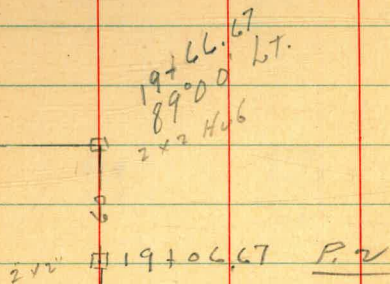 19+66.67
89°00' Lt.
2x2 Hub
60
2"x2" 19+06.67 P.